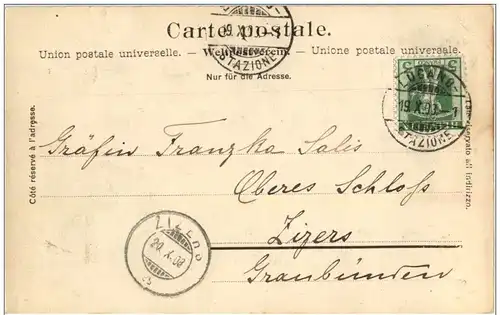 Carte postale.
Union postale universelle. – Weltpostverein. – Unione postale universale.
Nur für die Adresse.
Côté réservé à l'adresse.
STAZIONE
LUGANO
19.X.08.–1
STAZIONE
Gräfin Franzka Salis
Oberes Schloß
Zizers
Graubünden
ZIZERS
20.X.08